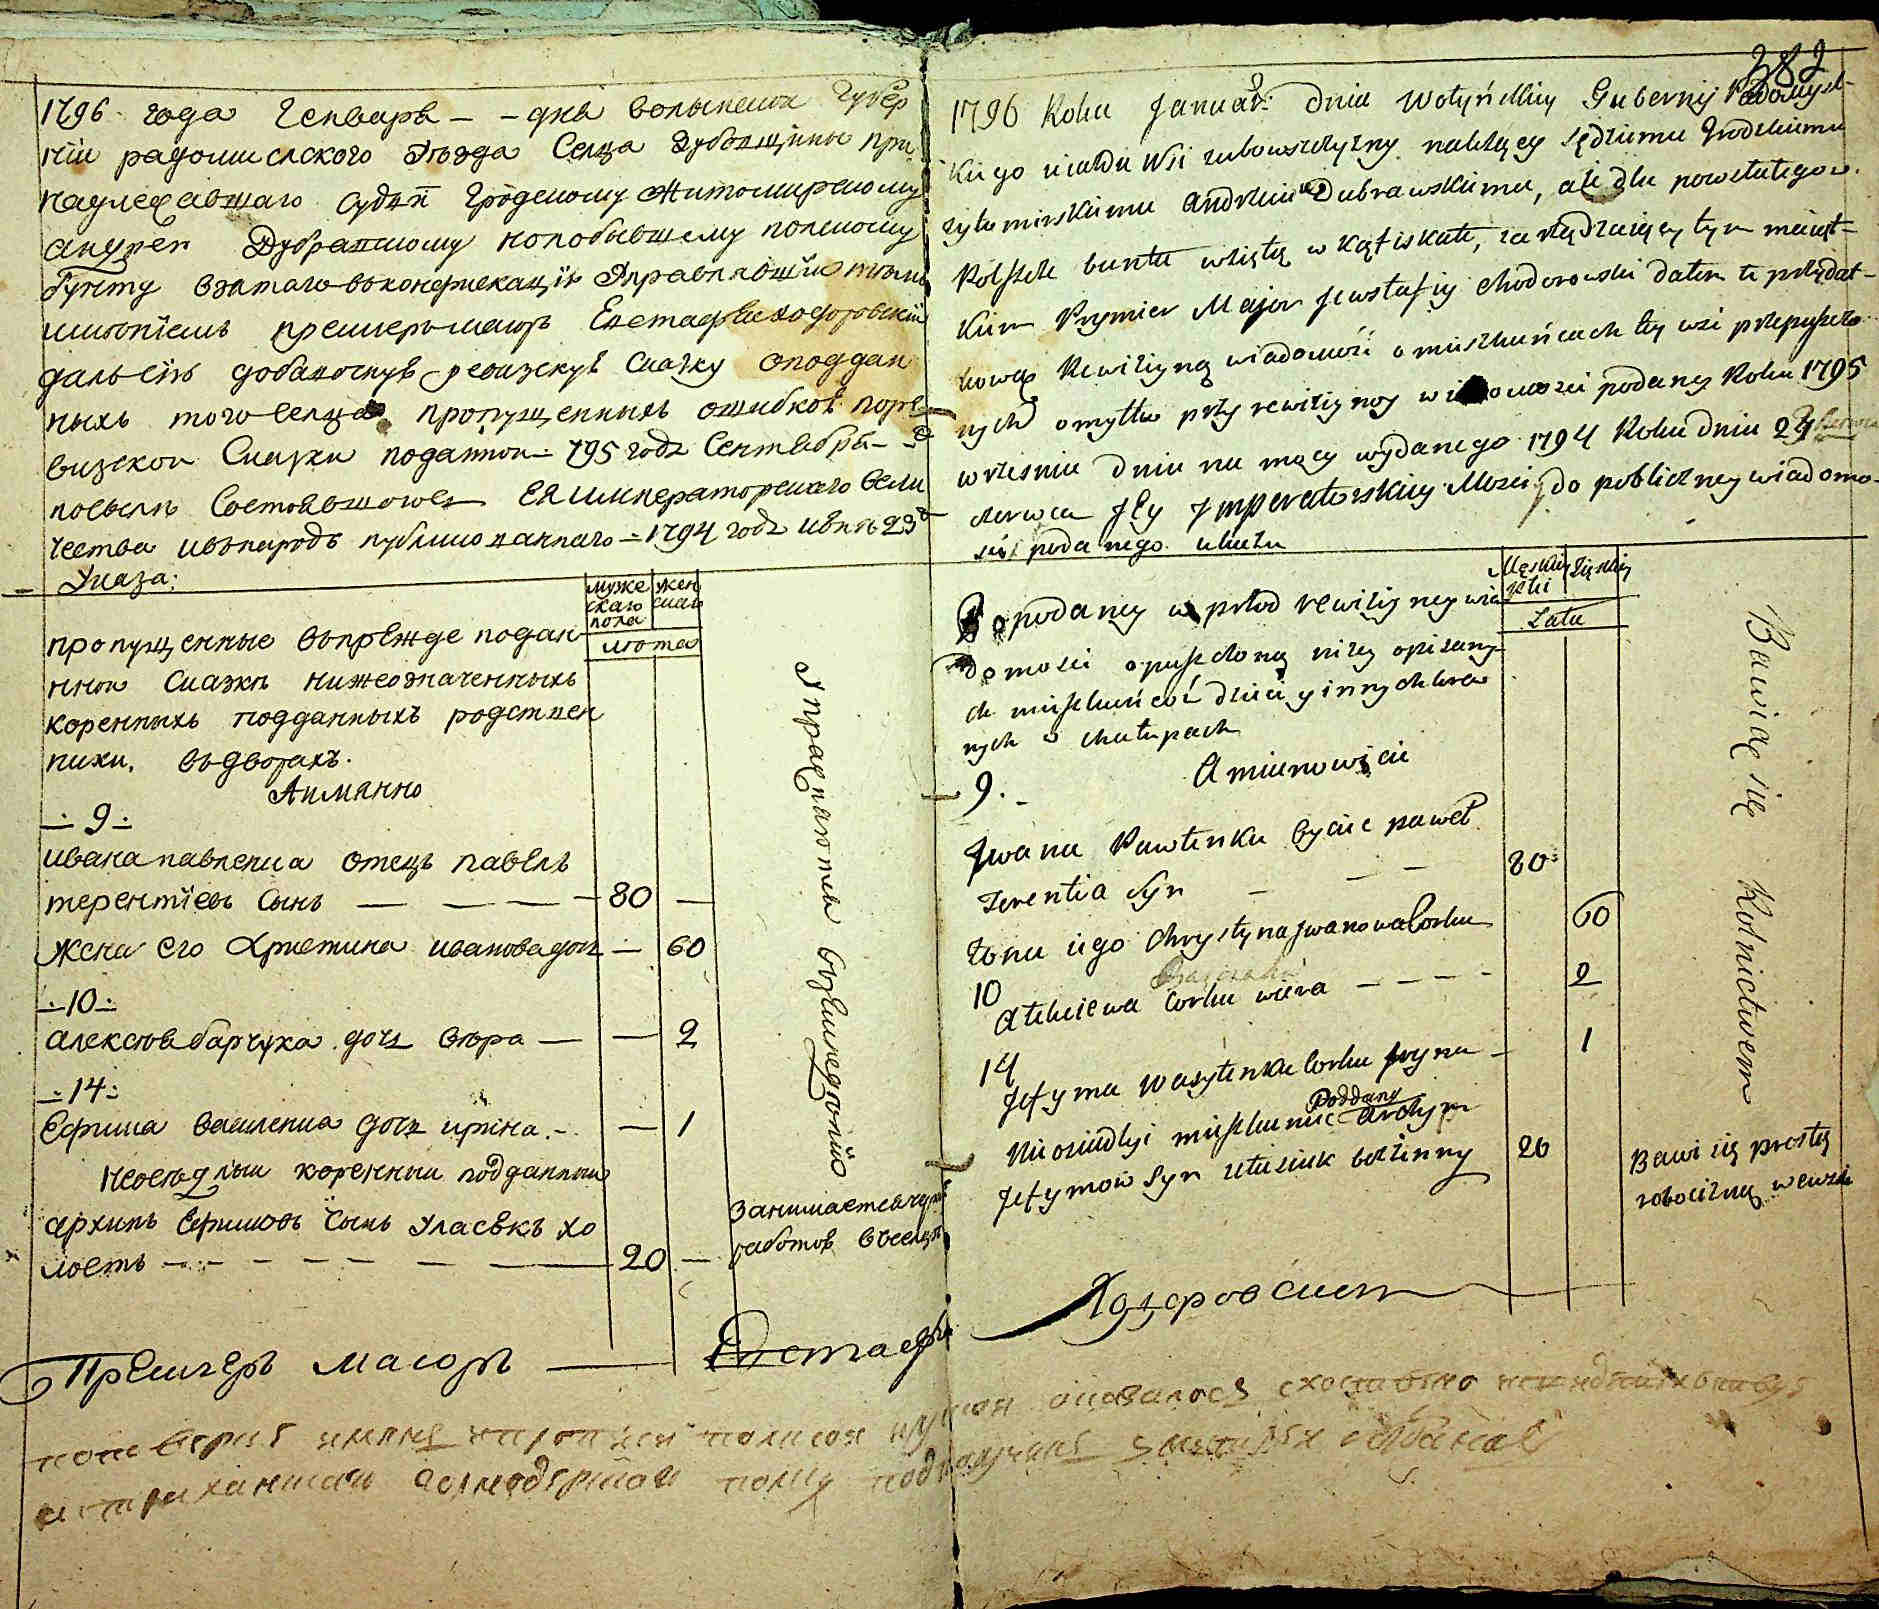 1796 года Генваря - - дня волынской Губер
нїи радомислского Уезда Селца Дубовщины при
надлежавшаго Судїи Гродскому Житомирскому
андрею Дубравскому нопобывшему полскому
бунту взятаго вконфискацїю Управляющїй тымъ
имѣнїемъ премиеръ маиоръ Евстафїй ходоровскїй
далъ сїю добавочную ревизскую Сказку оподдан
ныхъ того Селца пропущенныхъ ошибкою поре
визской Сказки поданной 795 года Сентября
посылѣ Состоявшогося ЕЯ императорскаго вели
чества ивънародъ публикованнаго 1794 года июня 23
Указа:
муже
скаго
пола
жен
скаго
лѣта
пропущенные въпрежде подан
нной Сказкѣ нижеозначенныхъ
коренныхъ подданныхъ родствен
ники. въдворахъ.
Аимянно
9
ивана павленка отецъ павелъ
терентїевъ Сынъ — 80 —
жена его Христина иванова дочь — 60
10
алексѣя барчука дочь вѣра — — 2
14
Ефима василенка дочь ирина. — 1
неоседлыи коренныи подданныи
архипъ Ефимовъ Сынъ Уласюкъ хо
лостъ — 20 —
Упражняются въземледѣлїю
Занимается чорно
работою въселцѣ
Премиеръ маиоръ — Евстафїй
382
1796 Roku Januar: dnia Wołyńskiy Guberny Radomysl-
kiego uiazdu Wsi dubowszczyzny nalezącey Sędziemu Grodzkiemu
zytomirskiemu Andrzeiowi Dubrawskiemu, ale dla powstałego w
Polszcze buntu wziętą w Kąfiskatę, zarządzaiący tym maiąt-
kiem Prymier Major Jewstafiy Chodorowski dałem tę przydat-
kową Rewiziyną wiadomość o mieszkańcach tey wsi przepuszczo
nych omyłką przy rewiziyney wiadomosci podaney Roku 1795
września dnia na mocy wydanego 1794 Roku dnia 23 Czerwca
czerwca Jey Jmperatorskiey Mosci do publiczney wiadomo-
sci podanego ukazu
Męskiey
płci
Żęskiey
Lata
W podaney w przod rewiziyney wia
domosci opuszczoną niżey opisany
ch mieszkańcow dzieci y innych krew
nych w chałupach
Amianowicie
9.
Jwana Pawlenka Oyciec paweł
Terentia Syn — — — 80
Zona iego Chrystyna Jwanowa Corka 60
10
Alexiewa Corka wiera — — — 2
14
Jefyma Wasylenka Corka Jryna — 1
Nieosiadłyi mieszkaniec Poddany Archyp
Jefymow Syn Ułasiuk bezżenny 20
Bawią się Rolnictwem
Bawi się prostą
robocizną w wiosce
Ходоровскїй